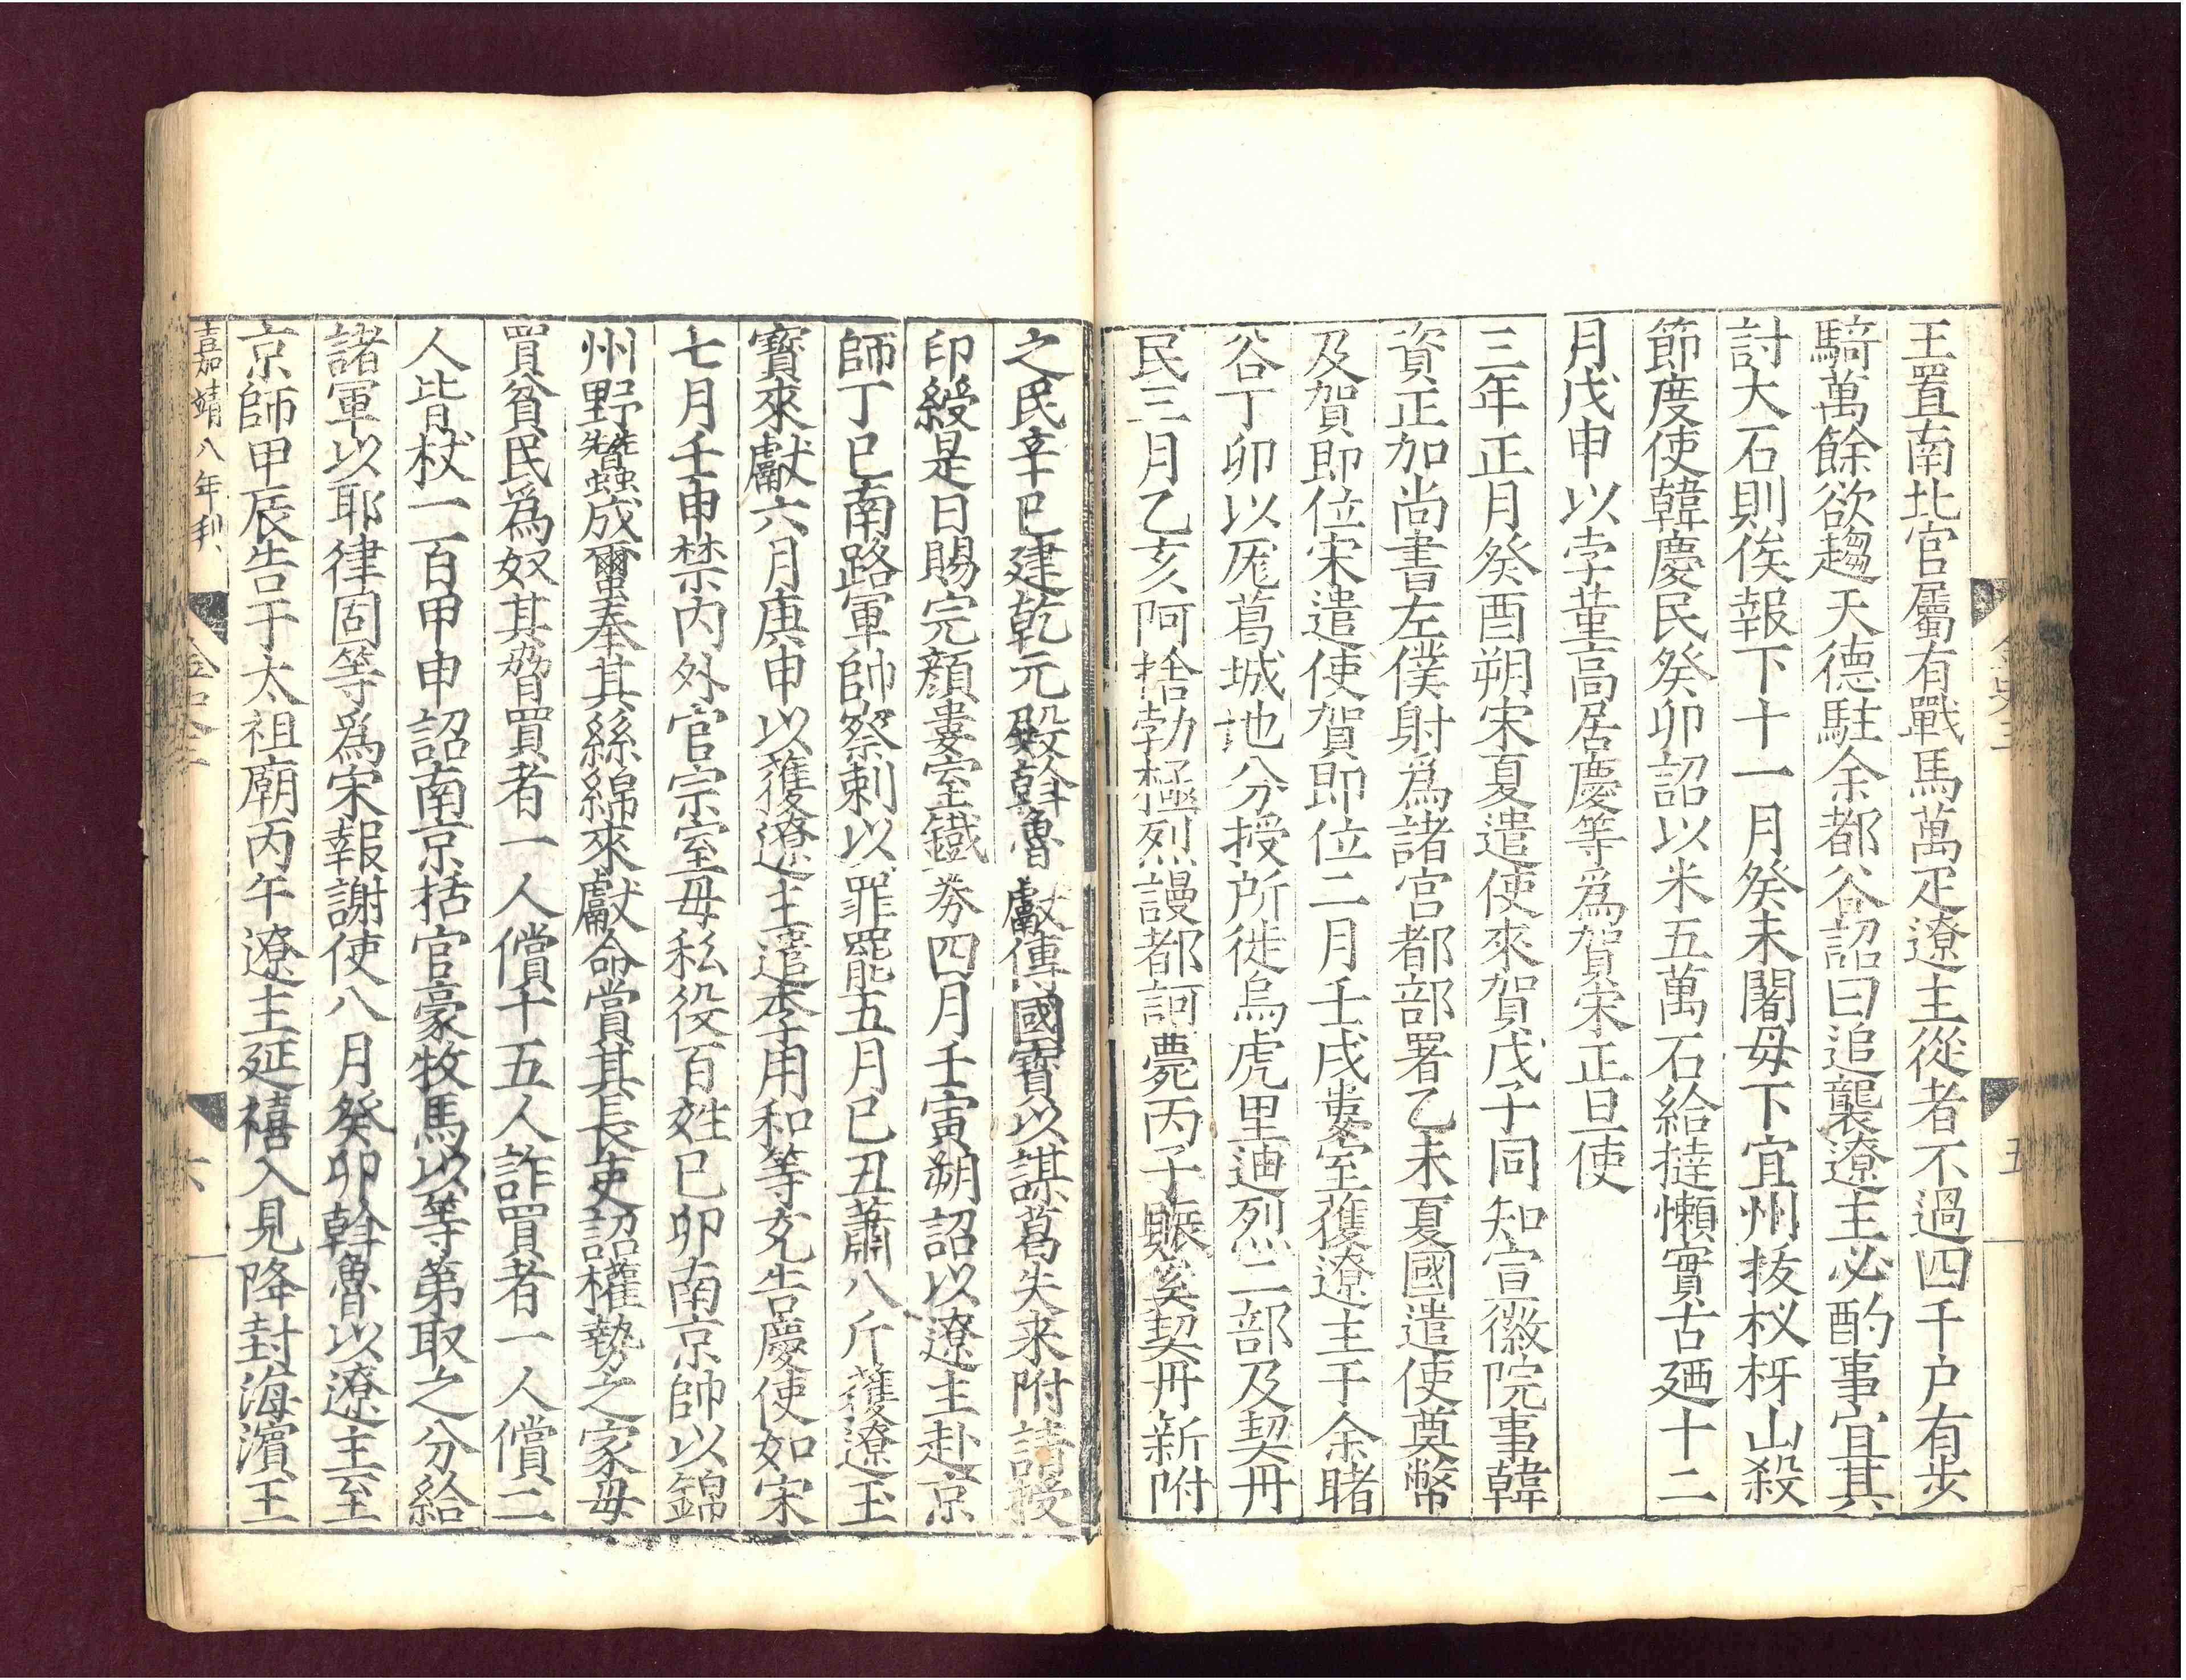 王置南北官屬有戰馬萬疋遼主從者不過四千户有步
騎萬餘欲趨天德駐余都谷詔曰追襲遼主必酌事宜其
討大石則俟報下十一月癸未闍母下宜州拔杈枒山殺
節度使韓慶民癸卯詔以米五萬石給撻懶實古廼十二
月戊申以孛菫高居慶等爲賀宋正旦使
三年正月癸酉朔宋夏遣使來賀戊子同知宣徽院事韓
資正加尚書左僕射爲諸宫都部署乙未夏國遣使奠幣
及賀即位宋遣使賀即位二月壬戌婁室獲遼主于余睹
谷丁卯以厖葛城地分授所徙烏虎里廸烈二部及契丹
民三月乙亥阿捨勃極烈謾都訶薨丙子賑奚契丹新附
之民辛巳建乾元殿斡魯獻傳國寶以謀葛失来附請授
印綬是日賜完顔婁室鐵券四月壬寅朔詔以遼主赴京
師丁巳南路軍帥察剌以罪罷五月己丑蕭八斤獲遼玉
寶來獻六月庚申以獲遼主遣李用和等充告慶使如宋
七月壬申禁内外官宗室毋私役百姓己卯南京帥以錦
州野蠶成璽奉其絲綿來獻命賞其長吏詔權勢之家毋
買貧民爲奴其脅買者一人償十五人詐買者一人償二
人皆杖一百甲申詔南京括官豪牧馬以等第取之分給
諸軍以耶律固等爲宋報謝使八月癸卯斡魯以遼主至
京師甲辰告于太祖廟丙午遼主延禧入見降封海濱王
嘉靖八年刊
六
五